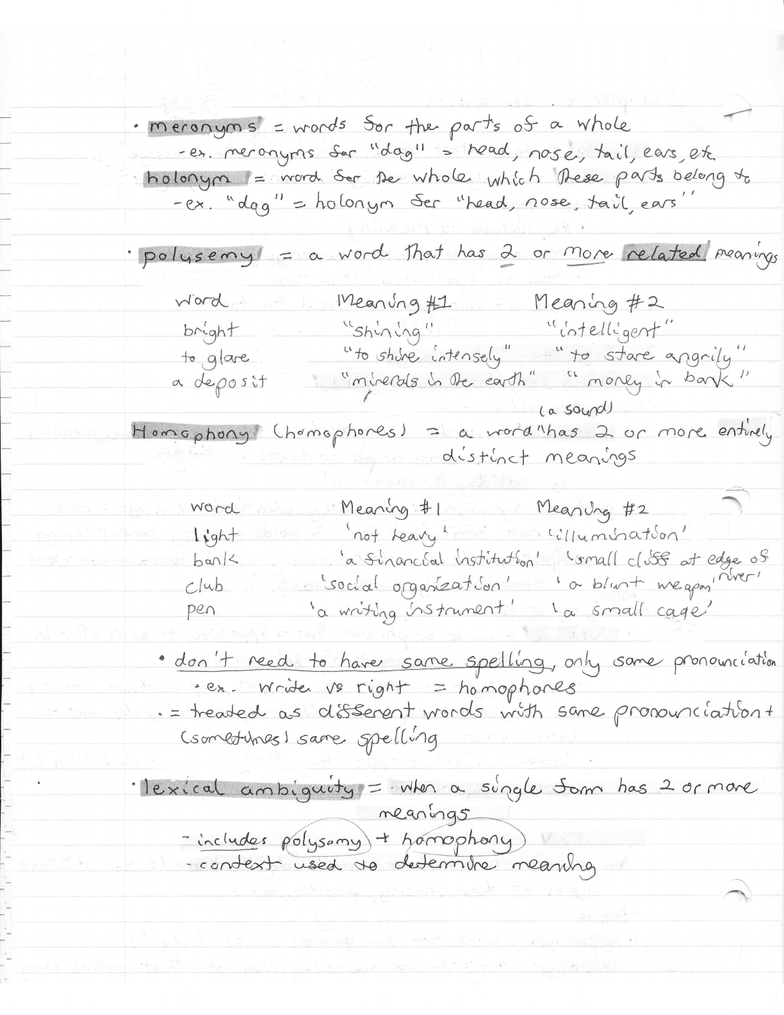 · meronyms = words for the parts of a whole
- ex. meronyms for "dog" = head, nose, tail, ears, etc
holonym = word for the whole which these parts belong to
- ex. "dog" = holonym for "head, nose, tail, ears"
· polysemy = a word that has 2 or more related meanings
word Meaning #1 Meaning #2
bright "shining" "intelligent"
to glare "to shine intensely" "to stare angrily"
a deposit "minerals in the earth" "money in bank"
(a sound)
Homophony (homophones) = a word has 2 or more entirely
distinct meanings
word Meaning #1 Meaning #2
light 'not heavy' 'illumination'
bank 'a financial institution' 'small cliff at edge of
river'
club 'social organization' 'a blunt weapon'
pen 'a writing instrument' 'a small cage'
• don't need to have same spelling, only same pronounciation
• ex. write vs right = homophones
• = treated as different words with same pronounciation +
(sometimes) same spelling
· lexical ambiguity = when a single form has 2 or more
meanings
- includes polysomy + homophony
- context used to determine meaning